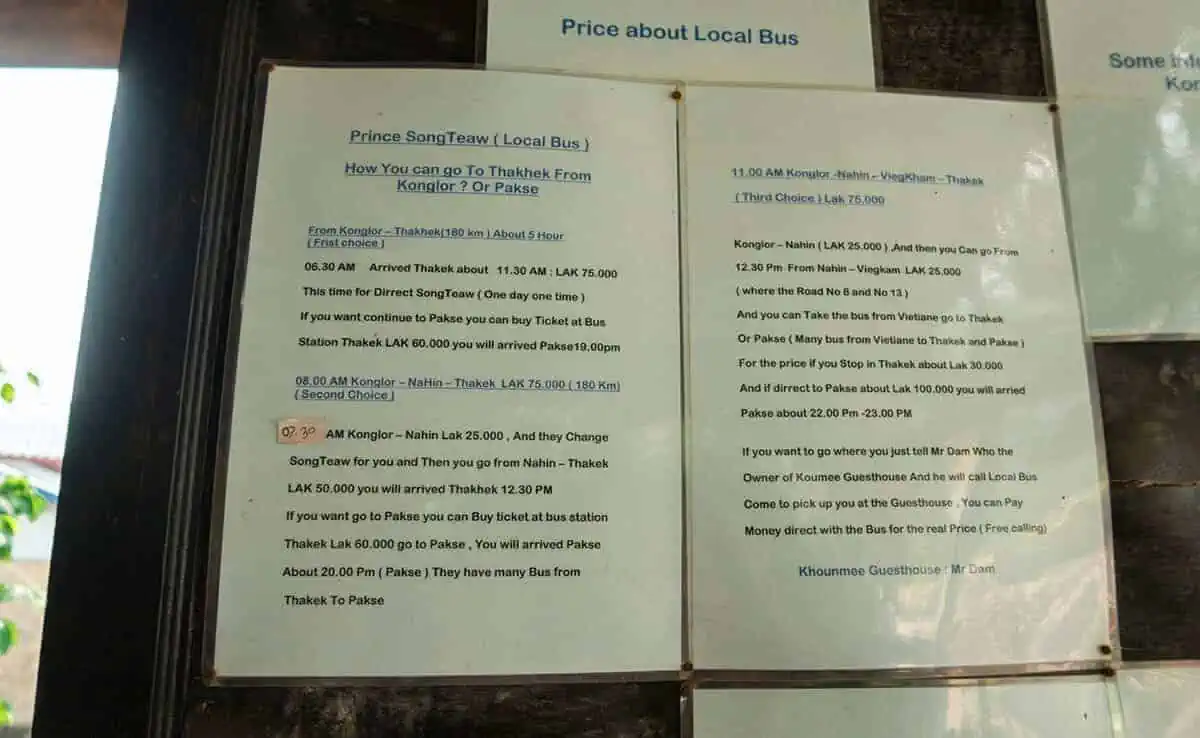 Price about Local Bus
Some
Prince SongTeaw ( Local Bus )
How You can go To Thakhek From
Konglor ? Or Pakse
From Konglor – Thakhek(180 km ) About 5 Hour
( Frist choice )
06.30 AM Arrived Thakek about 11.30 AM : LAK 75.000
This time for Dirrect SongTeaw ( One day one time )
If you want continue to Pakse you can buy Ticket at Bus
Station Thakek LAK 60.000 you will arrived Pakse19.00pm
08.00 AM Konglor – NaHin – Thakek LAK 75.000 ( 180 Km)
( Second Choice )
07.30 AM Konglor – Nahin Lak 25.000 , And they Change
SongTeaw for you and Then you go from Nahin – Thakek
LAK 50.000 you will arrived Thakhek 12.30 PM
If you want go to Pakse you can Buy ticket at bus station
Thakek Lak 60.000 go to Pakse , You will arrived Pakse
About 20.00 Pm ( Pakse ) They have many Bus from
Thakek To Pakse
11.00 AM Konglor -Nahin – ViegKham – Thakek
( Third Choice ) Lak 75.000
Konglor – Nahin ( LAK 25.000 ) ,And then you Can go From
12.30 Pm From Nahin – Viegkam LAK 25.000
( where the Road No 8 and No 13 )
And you can Take the bus from Vietiane go to Thakek
Or Pakse ( Many bus from Vietiane to Thakek and Pakse )
For the price if you Stop in Thakek about Lak 30.000
And if dirrect to Pakse about Lak 100.000 you will arried
Pakse about 22.00 Pm -23.00 PM
If you want to go where you just tell Mr Dam Who the
Owner of Koumee Guesthouse And he will call Local Bus
Come to pick up you at the Guesthouse , You can Pay
Money direct with the Bus for the real Price ( Free calling)
Khounmee Guesthouse : Mr Dam